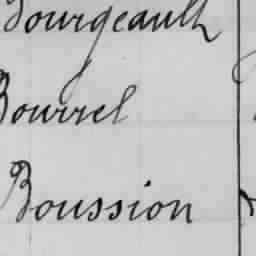 Bourgeault
Bourrel
Boussion